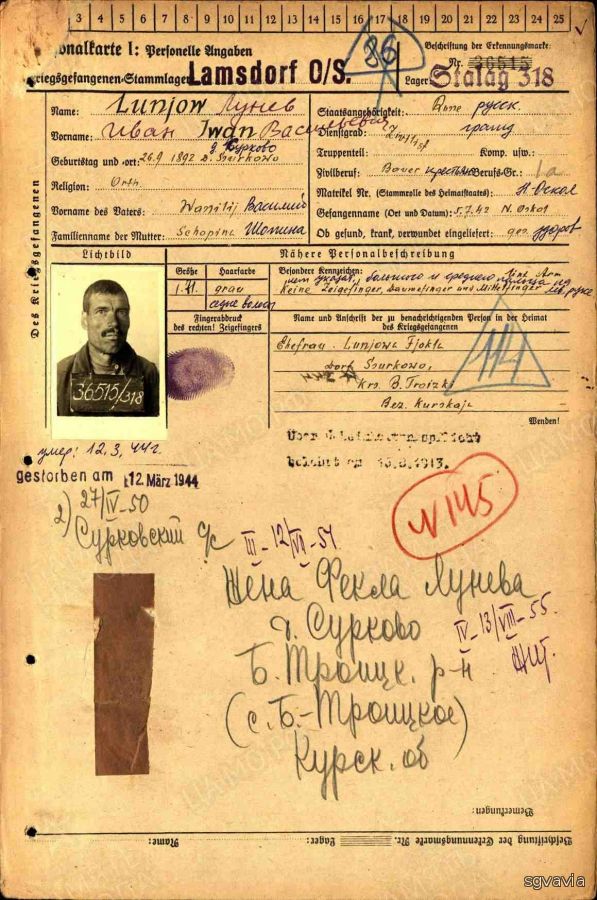 3 4 5 6 7 8 9 10 11 12 13 14 15 16 17 18 19 20 21 22 23 24 25
onalkarte I: Personelle Angaben
86
Beschriftung der Erkennungsmarke:
riegsgefangenen-Stammlager: Lamsdorf O/S.
Nr. 36515
Lager: Stalag 318
Des Kriegsgefangenen
Name: Lunjow Лунев
Vorname: Иван Iwan Васильевич
д Сурково
Geburtstag und -ort: 26.9 1892 D. Surkowo
Religion: Orth
Vorname des Vaters: Wasilij Василий
Familienname der Mutter: Schopina Шопина
Staatsangehörigkeit: Russe русск.
Dienstgrad: Zivilist гражд
Truppenteil: Komp. usw.:
Zivilberuf: Bauer крестьян Berufs-Gr.: 1a
Matrikel Nr. (Stammrolle des Heimatstaats): Н. Оскол
Gefangennahme (Ort und Datum): 5.7.42 N. Oskol
Ob gesund, krank, verwundet eingeliefert: ges. здоров
Lichtbild
Nähere Personalbeschreibung
Größe
Haarfarbe
Besondere Kennzeichen:
1.71
grau
Keine Zeigefinger, Daumefinger und Mittelfinger
Fingerabdruck
des rechten! Zeigefingers
Name und Anschrift der zu benachrichtigenden Person in der Heimat
des Kriegsgefangenen
36515/318
Ehefrau. Lunjowa Fjokla
Dorf Surkowo
Krs. B. Troizki
Bez. Kurskaja
114
Wenden!
умер: 12.3.44г.
gestorben am 12. März 1944
Über
belehrt am
N 145
2) 27/IV-50
Сурковский с/с
III-12/VII-51
Жена Фекла Лунева
д. Сурково
IV-13/VIII-55.
Б. Троицк. р-н
(с. Б-Троицкое)
Курск. об
Bemerkungen:
Beschriftung der Erkennungsmarke Nr.
Lager:
Name:
sgvavia